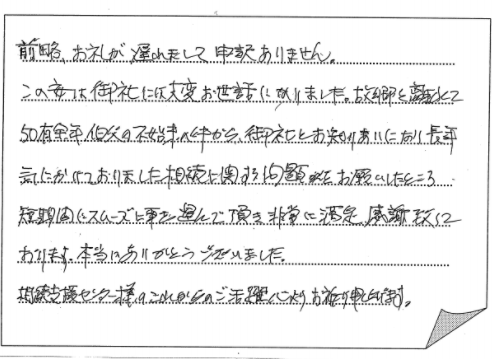 前略、お礼が遅れまして申訳ありません。
この度は御社には大変お世話になりました。故郷を離れて
50有余年伯父の不始末の件から、御社とお知りあいになり長年
気にかけておりました相続に関する問題をお願いしたところ
短期間にスムーズに事を運んで頂き非常に満足、感謝致して
おります。本当にありがとうございました。
相続支援センター様のこれからのご活躍を心よりお祈り申し上げます。